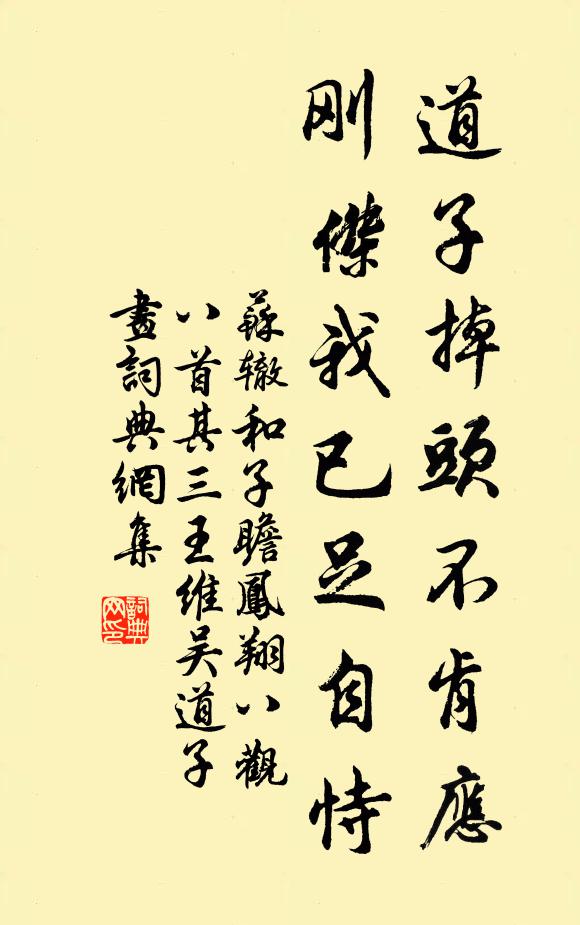 道子掉頭不肯應
刚傑我已足自恃
蘇辙和子瞻鳳翔八觀
八首其三王維吴道子
畫詞典網集
詞典
网印